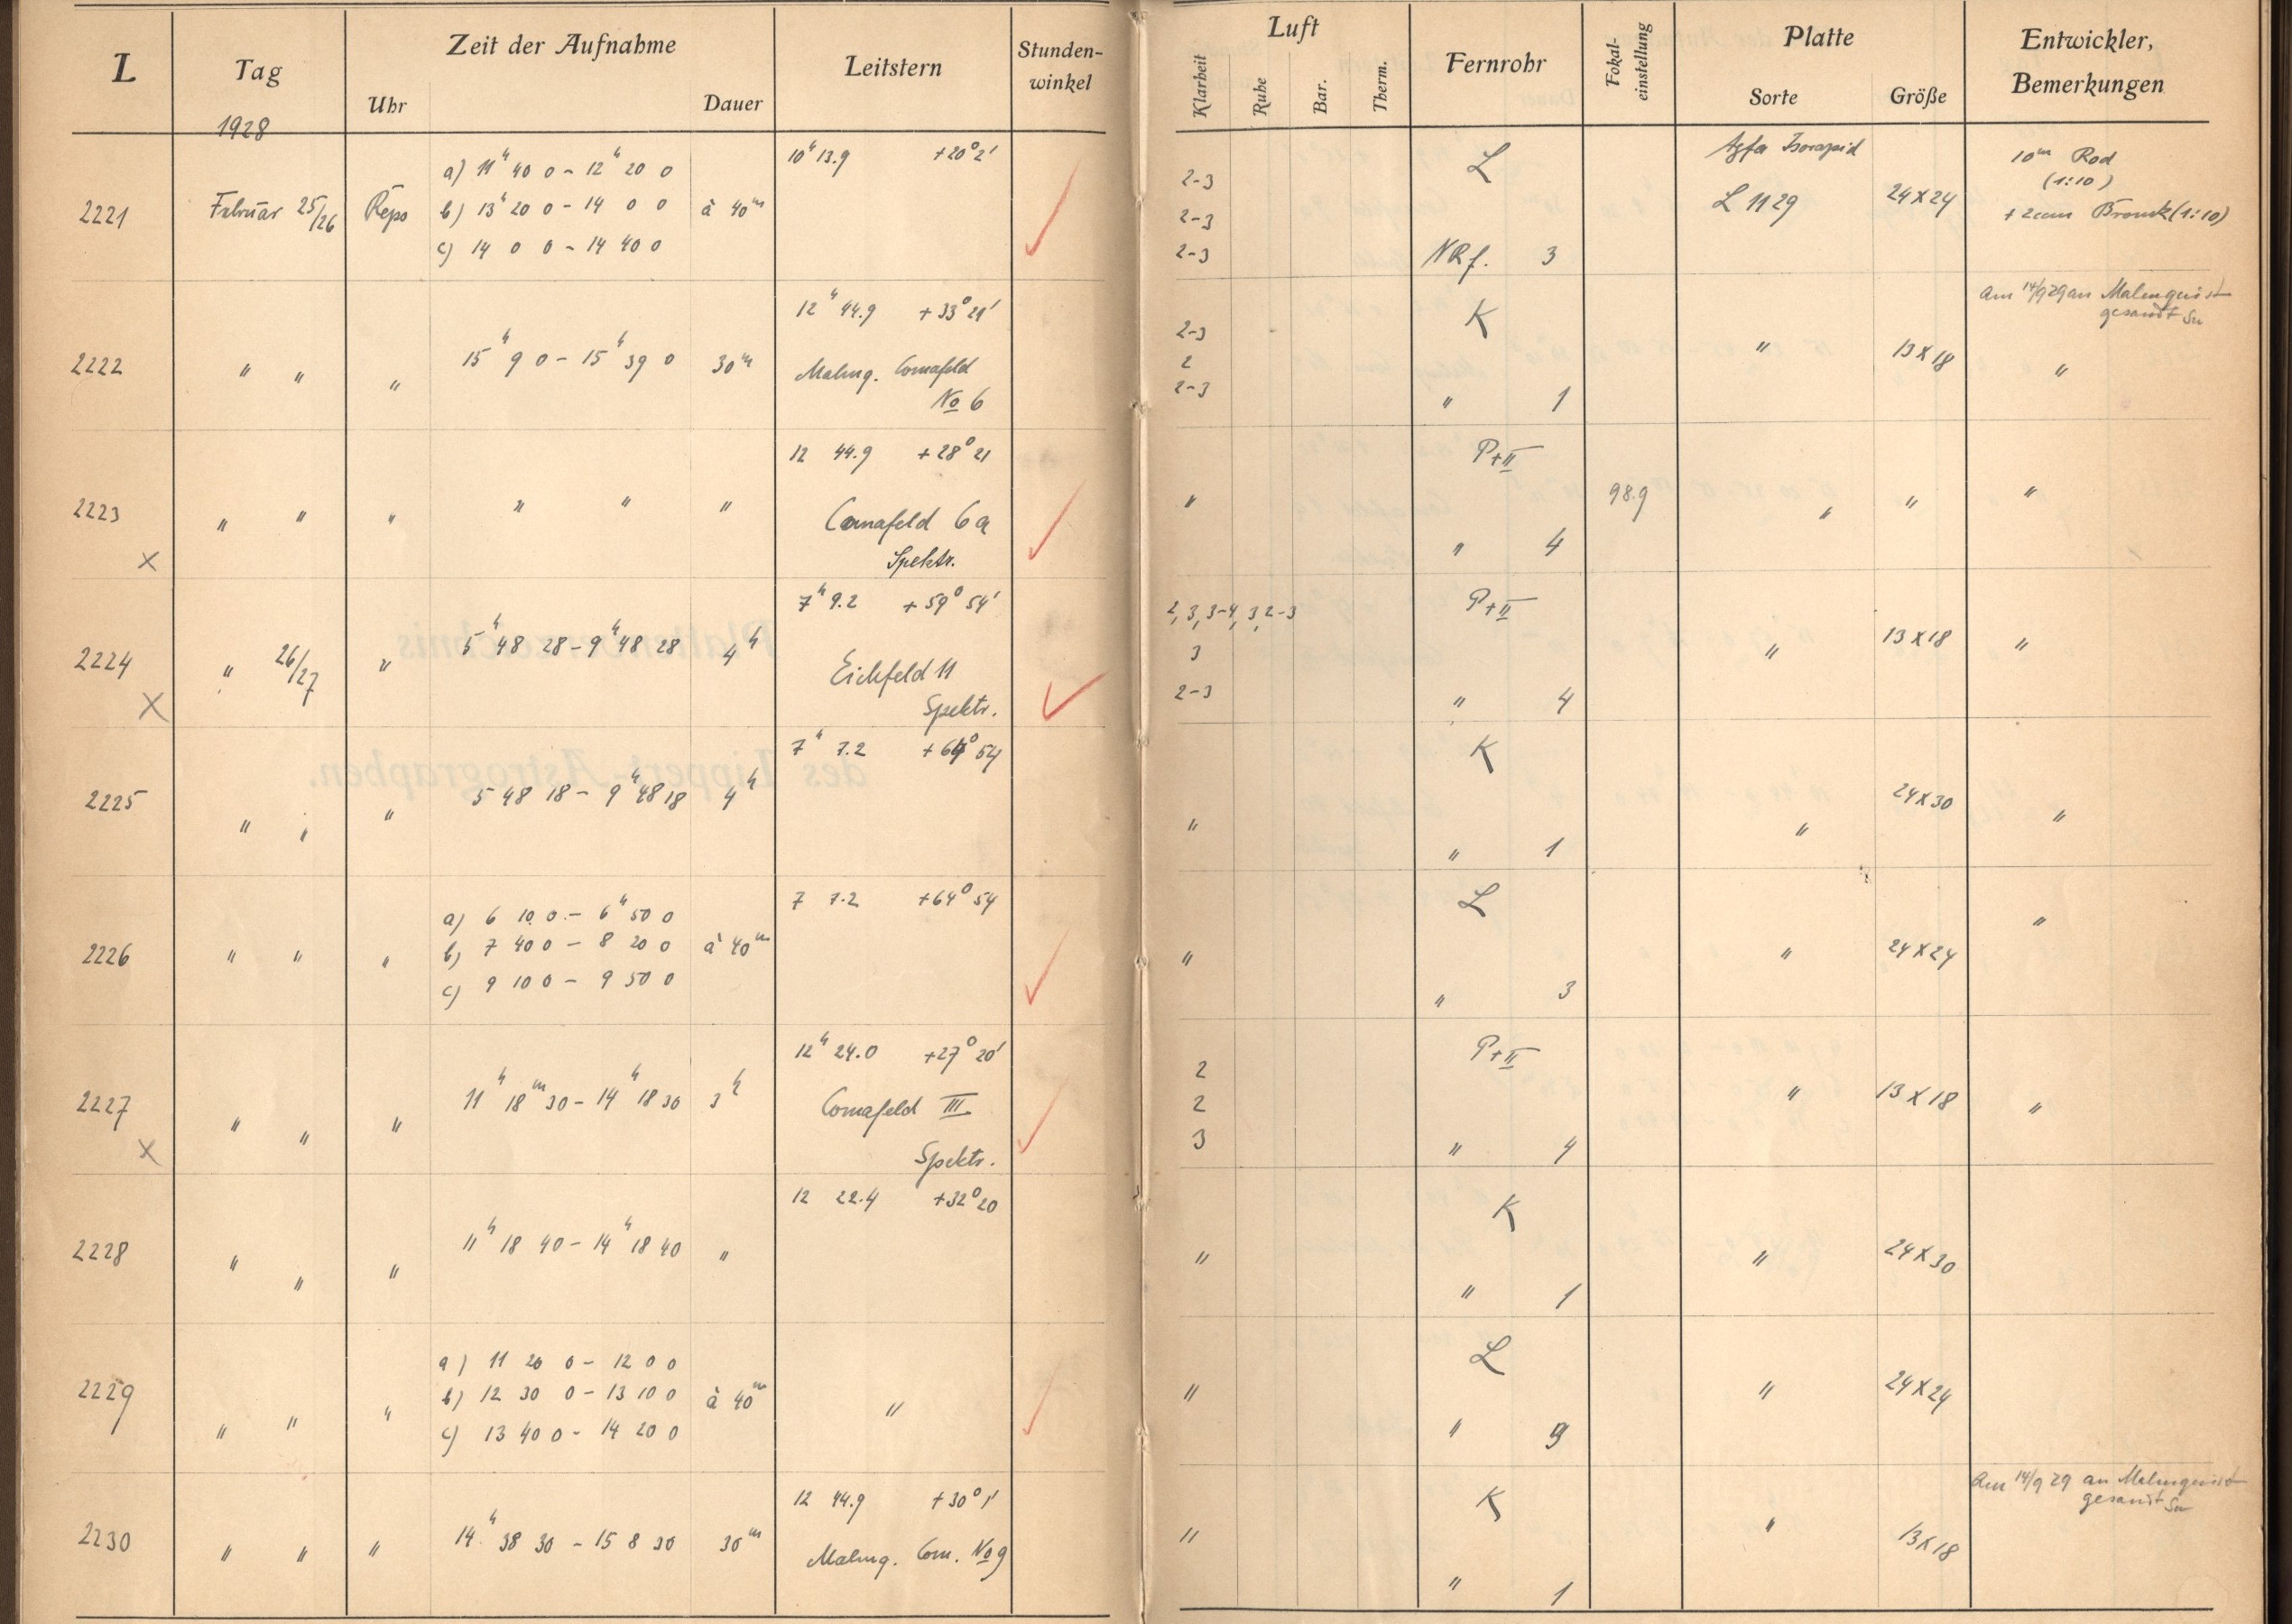 L Tag Zeit der Aufnahme Leitstern Stunden-winkel Luft Fernrohr Fokal-einstellung Platte Entwickler, Bemerkungen
Uhr Dauer Klarheit Ruhe Bar. Therm. Sorte Größe
1928
10h 13.9 +20° 2' L Agfa Isorapid 10m Rod
a) 11h 40 0 – 12h 20 0 2-3 (1:10)
2221 Februar 25/26 Repo b) 13h 20 0 – 14 0 0 à 40m 2-3 L 1129 24x24 + 2ccm Bromk (1:10)
c) 14 0 0 – 14 40 0 2-3 NRf. 3
12h 44.9 +33° 21' K Am 14/9 29 an Malmquist
2-3 gesandt Su
2222 " " " 15h 9 0 – 15h 39 0 30m Malmq. Comafeld 2 " 13x18 "
No 6 2-3 " 1
12 44.9 +28° 21 P+II
2223 " " " " " " Comafeld 6a " 98.9 " " "
x Spektr. " 4
7h 9.2 +59° 54' 2,3,3-4,3,2-3 P+II
2224 " 26/27 " 5h 48 28 – 9h 48 28 4h Eichfeld 11 3 " 13x18 "
x Spektr. 2-3 " 4
7h 7.2 +64° 54 K
2225 " " " 5 48 18 – 9h 48 18 4h " " 24x30 "
" 1
7 7.2 +64° 54 L
a) 6 10 0 – 6h 50 0 "
2226 " " " b) 7 40 0 – 8 20 0 à 40m " " 24x24
c) 9 10 0 – 9 50 0 " 3
12h 24.0 +27° 20' P+II
2
2227 " " " 11h 18m 30 – 14h 18 30 3h Comafeld III 2 " 13x18 "
x Spektr. 3 " 4
12 22.4 +32° 20 K
2228 " " " 11h 18 40 – 14h 18 40 " " " 24x30
" 1
a) 11 20 0 – 12 0 0 L
2229 " " " b) 12 30 0 – 13 10 0 à 40m " " " 24x24
c) 13 40 0 – 14 20 0 " 3
12 44.9 +30° 1' K Am 14/9 29 an Malmquist
gesandt Su
2230 " " " 14h 38 30 – 15 8 30 30m Malmq. Com. No 9 " " 13x18
" 1